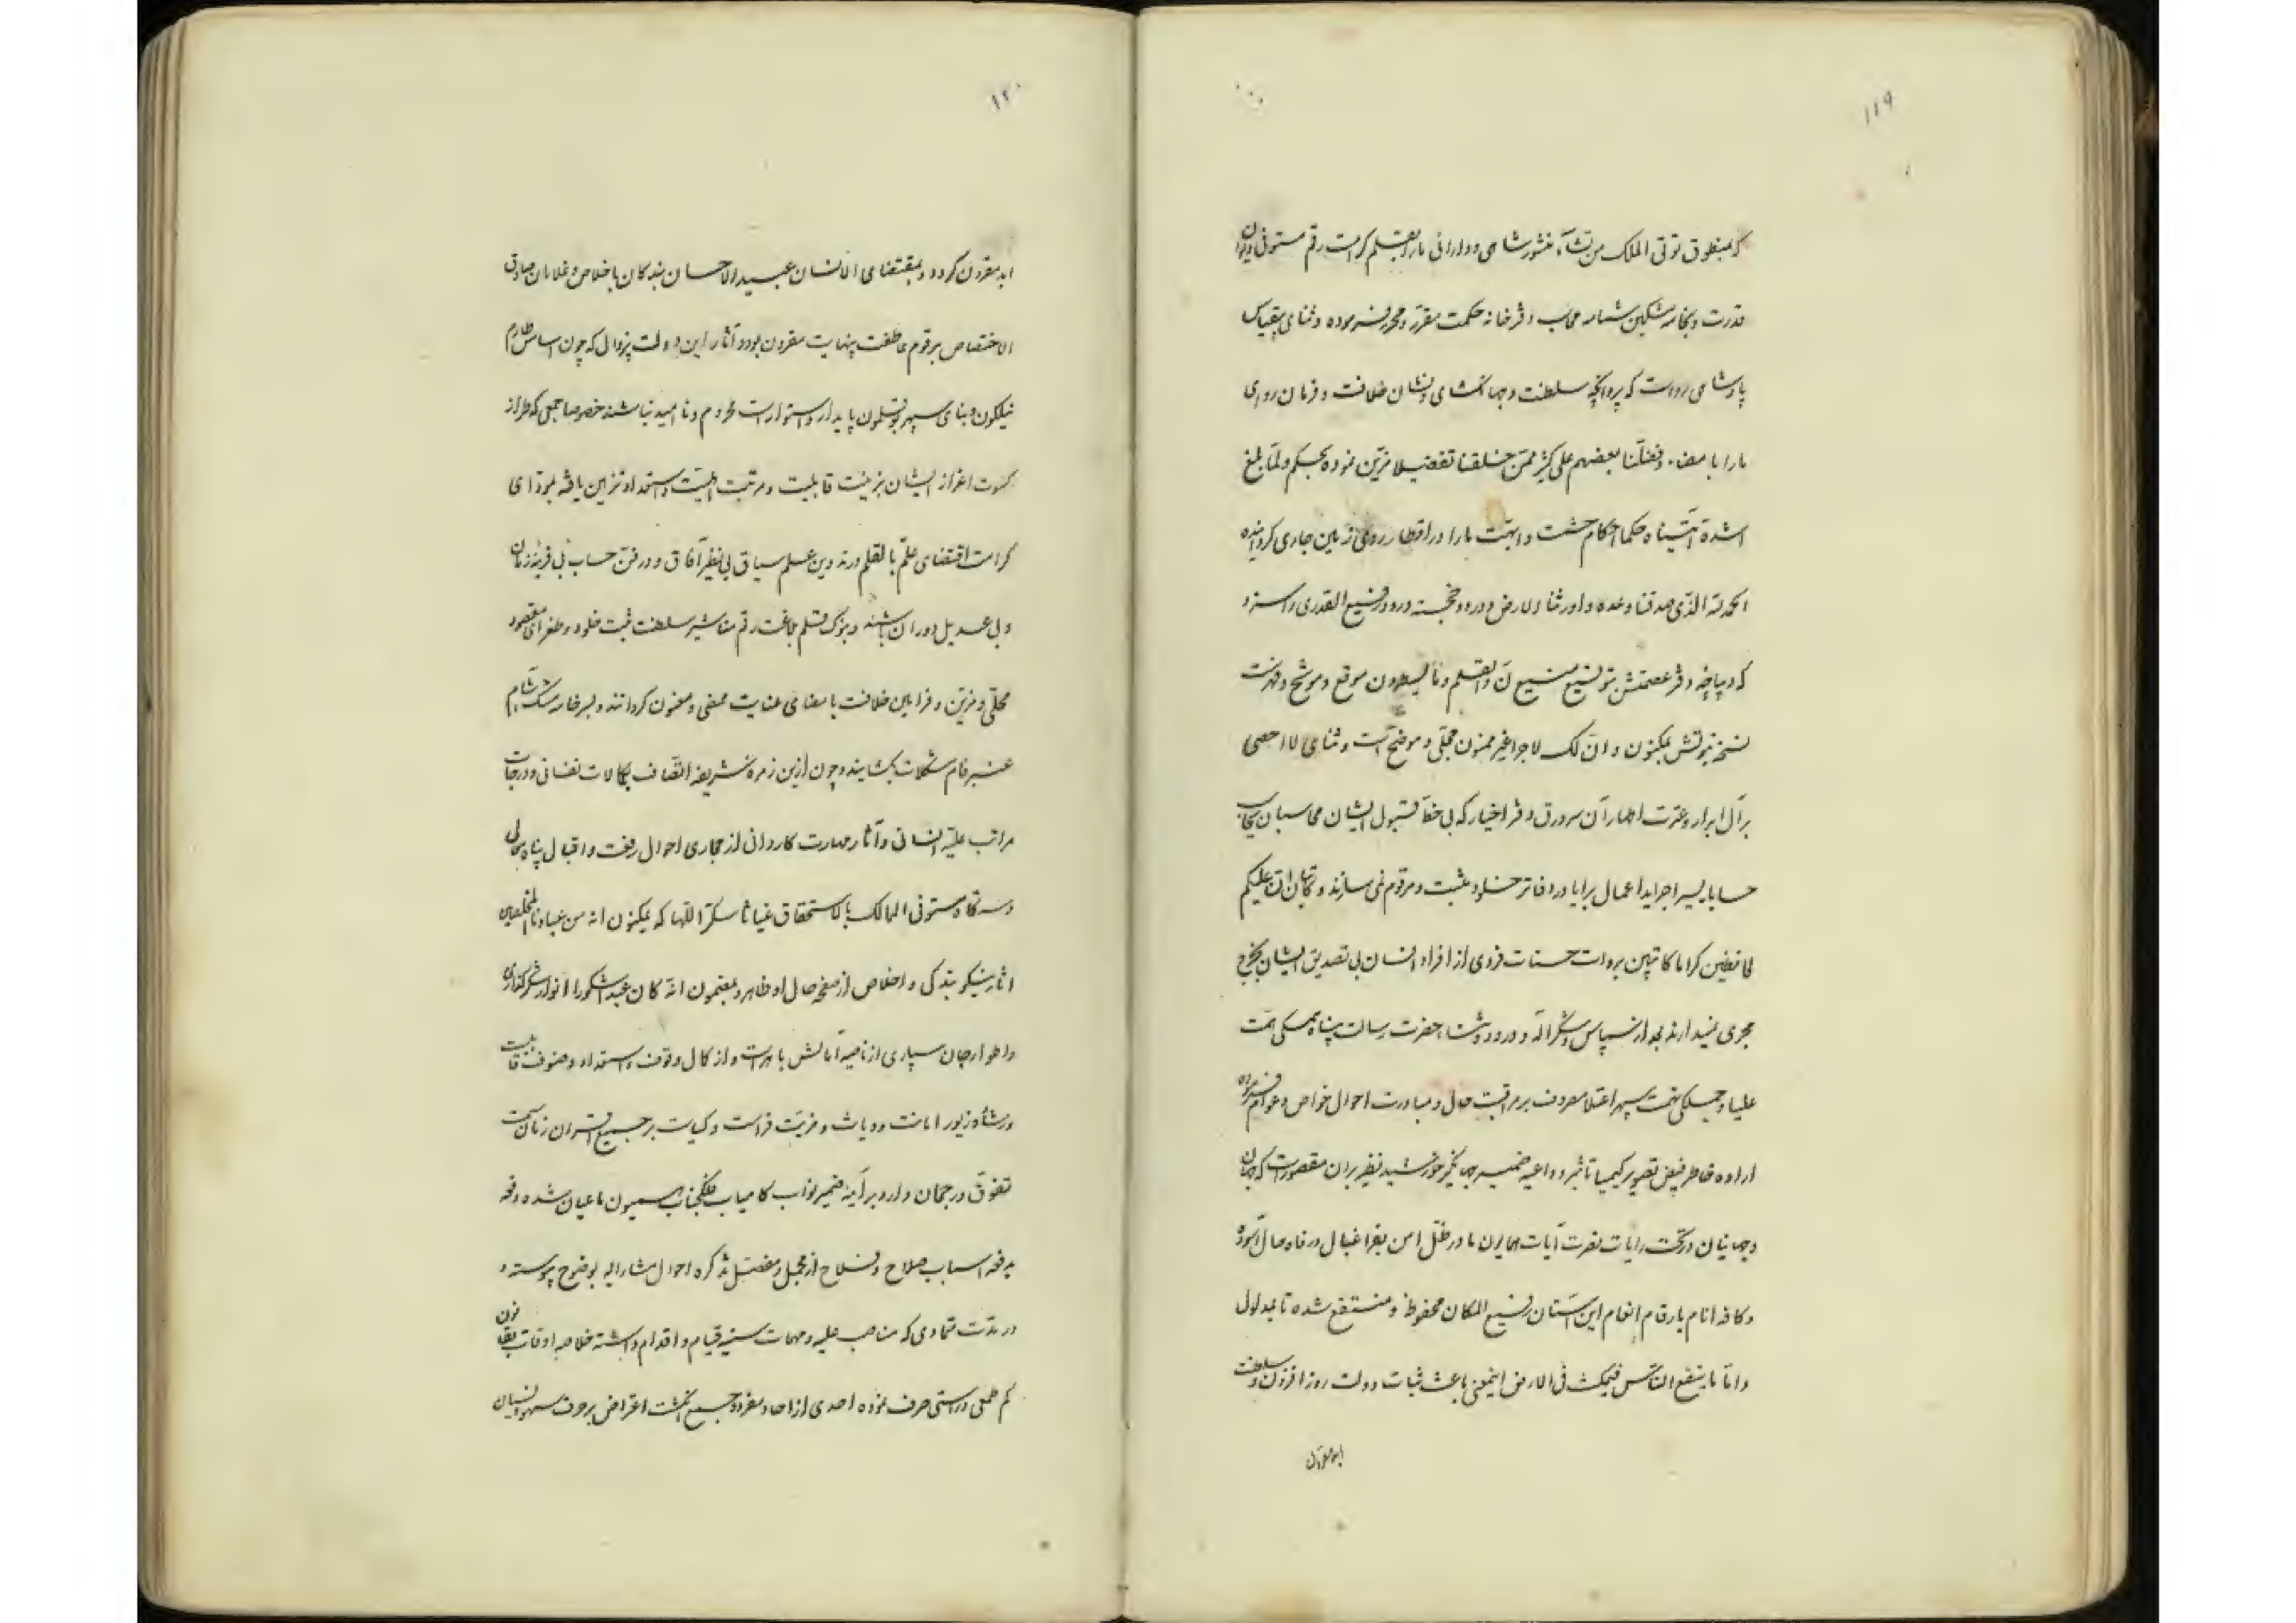 ۱۱۹
که بمنطوق توتی الملک من تشآء منشور شاهی و دارائی ما را بقلم کرامت رقم مستوفی دیوان
قدرت و بخامه مشکین شمامه محاسب دفترخانه حکمت مقرر و محرر فرموده و ثنای بیقیاس
پادشاهی رواست که پروانچه سلطنت و جهانگشای و نشان خلافت و فرمان روای
ما را بامضاء و فضلنا بعضهم علی کثیر ممن خلقنا تفضیلا مزین نموده بحکم و لما بلغ
اشده آتیناه حکما احکام حشمت و ابهت ما را در اقطار روی زمین جاری گردانیده
الحمد لله الذی صدقنا وعده و اورثنا الارض و درود خجسته ورود رفیع القدری را سزد
که دیباچه دفتر عصمتش بتوقیع منیع ن والقلم و ما یسطرون موقع و موشح و فهرست
نسخه نبوتش بمکنون و ان لک لاجرا غیر ممنون محلی و موضح است و ثنای لا احصی
بر آل ابرار و عترت اطهار آن سرورق دفتر اخیار که بی خط قبول ایشان محاسبان یحاسب
حسابا یسیرا جراید اعمال برایا در دفاتر خلود مثبت و مرقوم نمی سازند و کاتبان ان علیکم
لحافظین کراما کاتبین بروات حسنات فردی از افراد انسان بی تصدیق ایشان بخرج
مجری نمیدارند بعد از سپاس و شکر اله و درود و ثناء حضرت رسالت پناه همگی همت
علیا و جملگی نهمت سپهر اعتلا مصروف بر مراقبت حال و مبادرت احوال خواص و عوام فرموده
اراده خاطر فیض تصویر کیمیا تأثیر و داعیه ضمیر جهانگیر خورشید نظیر بران مقصور است که جهان
و جهانیان در تحت رایات نصرت آیات همایون ما در ظل امن بفراغبال و رفاه حال آسوده
و کافه انام بارقام انعام این آستان رفیع المکان محفوظ و منتفع شده تا بمدلول
و اما ما ینفع الناس فیمکث فی الارض اینمعنی باعث ثبات دولت روزافزون و سلطنت
ابد مقرون
۱۲۰
ابد مقرون گردد و بمقتضای الانسان عبید الاحسان بندگان باخلاص و غلامان صادق
الاختصاص برقوم عاطفت بینهایت مقرون بوده و آثار این دولت بیزوال که چون اساس طارم
نیلگون و بنای سپهر بوقلمون پایدار و استوار است محروم و ناامید نباشند خصوصا جمعی که طراز
کسوت اعزاز ایشان بزینت قابلیت و مرتبت اهلیت و استعداد تزیین یافته بمؤدای
کرامت اقتضای علم بالقلم در تدوین علم سیاق بی نظیر آفاق و در فن حساب بی قرینه زمان
و بی عدیل دوران باشند و بنوک قلم بلاغت رقم مناشیر سلطنت ثبت خلود و طغرای مقصود
محلی و مزین و فرامین خلافت بامضای عنایت ممضی و معنون گردانند و بسرخامه مشک شام
عنبر فام مشکلات بگشایند و چون ازین زمره شریفه اتصاف بکمالات نفسانی و درجات
مراتب علیه انسانی و آثار مهارت کاردانی از مجاری احوال رفعت و اقبال پناه معالی
دستگاه مستوفی الممالک بالاستحقاق غیاثا سکر اللها که بمکنون انه من عبادنا المخلصین
آثار نیکو بندگی و اخلاص از صفحه حال او ظاهر و بمضمون انه کان عبدا شکورا انوار شکرگذاری
و اطوار جان سپاری از ناصیه آمالش باهر است و از کمال وقوف و استعداد و صنوف قابلیت
و رشاد و زیور امانت و دیانت و مزیت فراست و کیاست بر جمیع اقران زمان سمت
تفوق و رجحان دارد بر آینه ضمیر نواب کامیاب فلکجناب همیون ما عیان شده دفعه
بدفعه اسباب صلاح و فلاح از مجمل و مفصل تذکره احوال مشارالیه بوضوح پیوسته و
در مدت تمادی که مناصب علیه و مهمات سنیه قیام و اقدام داشته خلاصه اوقات بقانون
کم طمعی و راستی صرف نموده احدی از احاد مفرد و جمیع انگشت اعتراض بر حرف سهو و نسیان